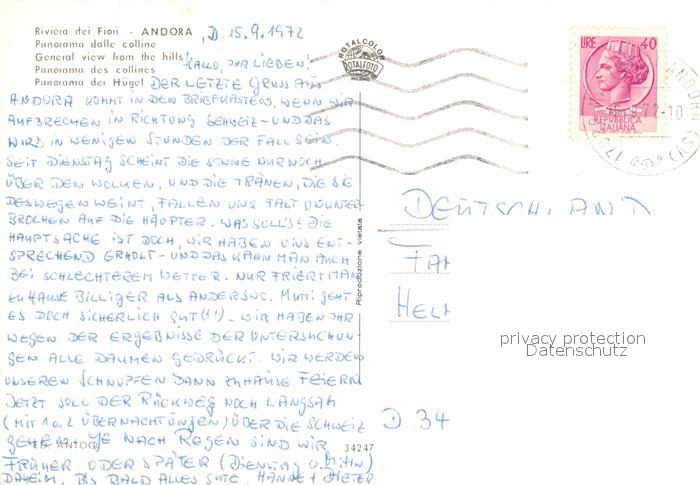 Riviera dei Fiori - ANDORA
Panorama dalle colline
General view from the hills
Panorama des collines
Panorama der Hügel
, D. 15.9.1972
HALLO, IHR LIEBEN!
DER LETZTE GRUSS AUS
ANDORA KOMMT IN DEN BRIEFKASTEN, WENN WIR
AUFBRECHEN IN RICHTUNG SCHWEIZ - UND DAS
WIRD IN WENIGEN STUNDEN DER FALL SEIN.
SEIT DIENSTAG SCHEINT DIE SONNE NUR NOCH
ÜBER DEN WOLKEN, UND DIE TRÄNEN, DIE SIE
DESWEGEN WEINT, FALLEN UNS FAST UNUNTER-
BROCHEN AUF DIE HÄUPTER. WAS SOLL'S! DIE
HAUPTSACHE IST DOCH, WIR HABEN UNS ENT-
SPRECHEND ERHOLT - UND DAS KANN MAN AUCH
BEI SCHLECHTEREM WETTER. NUR FRIERT MAN
ZU HAUSE BILLIGER ALS ANDERSWO. MUTTI GEHT
ES DOCH SICHERLICH GUT(!!) - WIR HABEN IHR
WEGEN DER ERGEBNISSE DER UNTERSUCHUN-
GEN ALLE DAUMEN GEDRÜCKT. WIR WERDEN
UNSEREN SCHNUPFEN DANN ZUHAUSE FEIERN
JETZT SOLL DER RÜCKWEG NOCH LANGSAM
(MIT 1 o. 2 ÜBERNACHTUNGEN) ÜBER DIE SCHWEIZ
GEHEN. JE NACH REGEN SIND WIR
FRÜHER ODER SPÄTER (DIENSTAG o. MITTW)
DAHEIM. BIS BALD ALLES GUTE, HANNE + DIETER
34247
Riproduzione vietata
ROTALCOLOR
ROTALFOTO
MILANO
LIRE 40
REPVBBLICA
ITALIANA
DEUTSCHLAND
FAM
HELM
D 34
privacy protection
Datenschutz